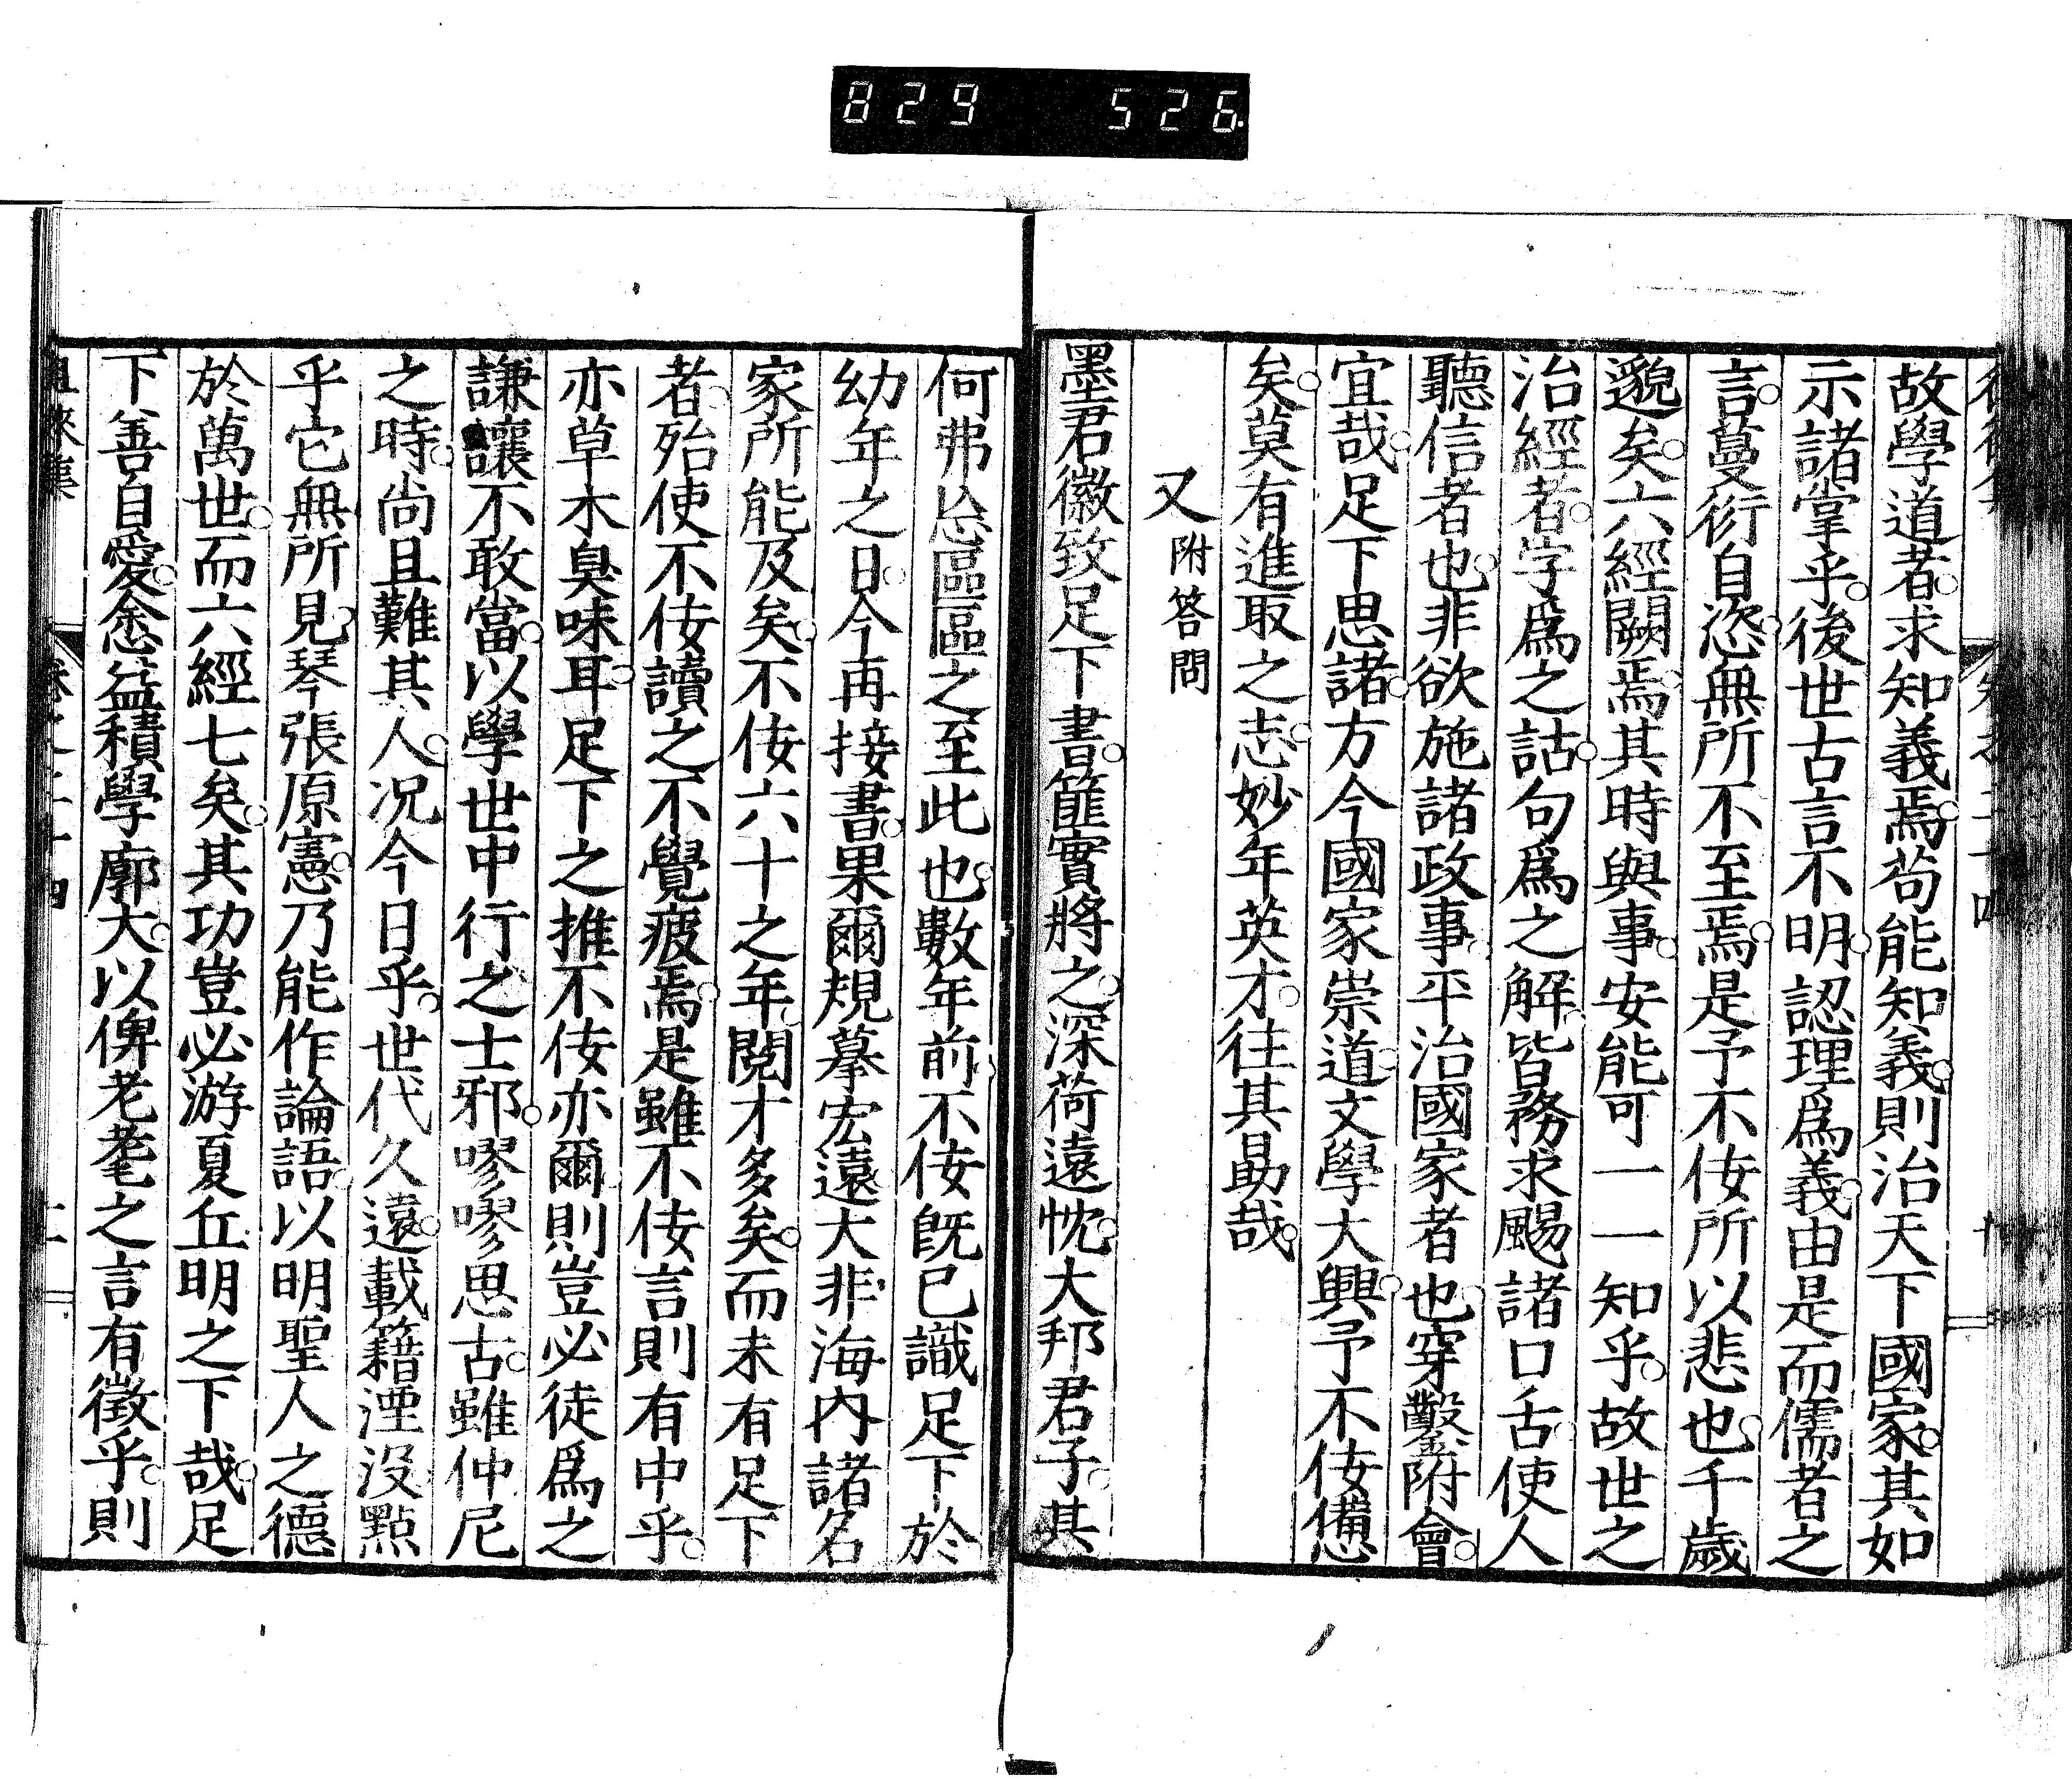 829 526
故學道者。求知義焉。苟能知義。則治天下國家。其如
示諸掌乎。後世古言不明。認理爲義。由是而儒者之
言。蔓衍自恣。無所不至焉。是予不佞所以悲也。千歲
邈矣。六經闕焉。其時與事。安能可一一知乎。故世之
治經者。字爲之詁。句爲之解。皆務求賜諸口舌。使人
聽信者也。非欲施諸政事。平治國家者也。穿鑿附會。
宜哉。足下思諸。方今國家崇道。文學大興。予不佞憊
矣。莫有進取之志。妙年英才。往其勗哉。
又 附答問
墨君徽致足下書。篚實將之。深荷遠忱。大邦君子。其
何弗忩區區之至此也。數年前。不佞旣已識足下於
幼年之日。今再接書。果爾規摹宏遠。大非海內諸名
家所能及矣。不佞六十之年。閱才多矣。而未有足下
者。殆使不佞讀之不覺疲焉。是雖不佞言則有中乎。
亦草木臭味耳。足下之推不佞亦爾。則豈必徒爲之
謙讓不敢當。以學世中行之士邪。嘐嘐思古。雖仲尼
之時。尚且難其人。况今日乎。世代久遠。載籍湮沒。點
乎它無所見。琴張原憲。乃能作論語。以明聖人之德
於萬世。而六經七矣。其功豈必游夏丘明之下哉。足
下善自愛。悆益積學廓大。以俾老耄之言有徵乎。則
徂徠集 卷之二十四 十二